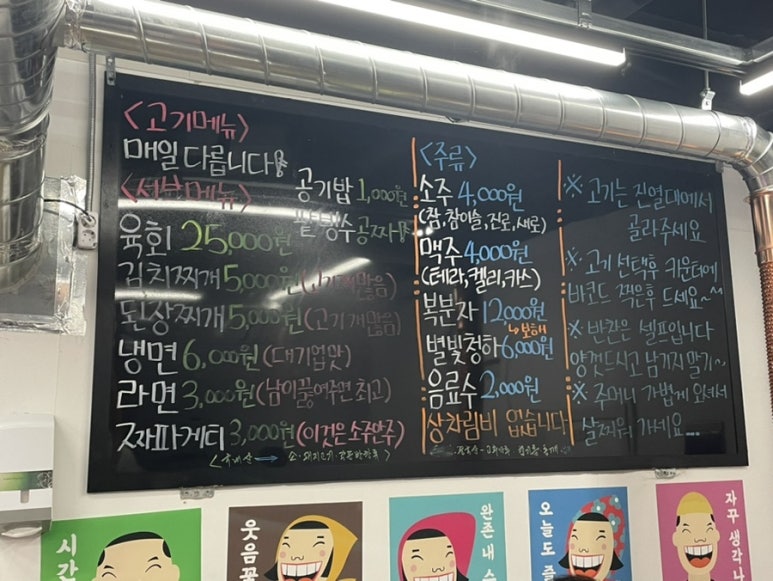 <고기메뉴>
매일 다릅니다
<서브메뉴>
공기밥 1,000원
육회 25,000원
김치찌개 5,000원 (고기 개많음)
된장찌개 5,000원 (고기 개많음)
냉면 6,000원 (대기업맛)
라면 3,000원 (남이 끓여주면 최고)
짜파게티 3,000원 (이것은 소주안주)
<주류>
소주 4,000원
(참, 참이슬, 진로, 새로)
맥주 4,000원
(테라, 켈리, 카스)
복분자 12000원
↳보해
별빛청하 6,000원
음료수 2,000원
상차림비 없습니다
※ 고기는 진열대에서
골라주세요
※ 고기 선택후 카운터에
바코드 찍은후 드세요~~
※ 반찬은 셀프입니다
양껏드시고 남기지말기~
※ 주머니 가볍게 오셔서
살찌워 가세요....
시간
웃음꽃
완존 내 스
오늘도 즐
자꾸 생각나